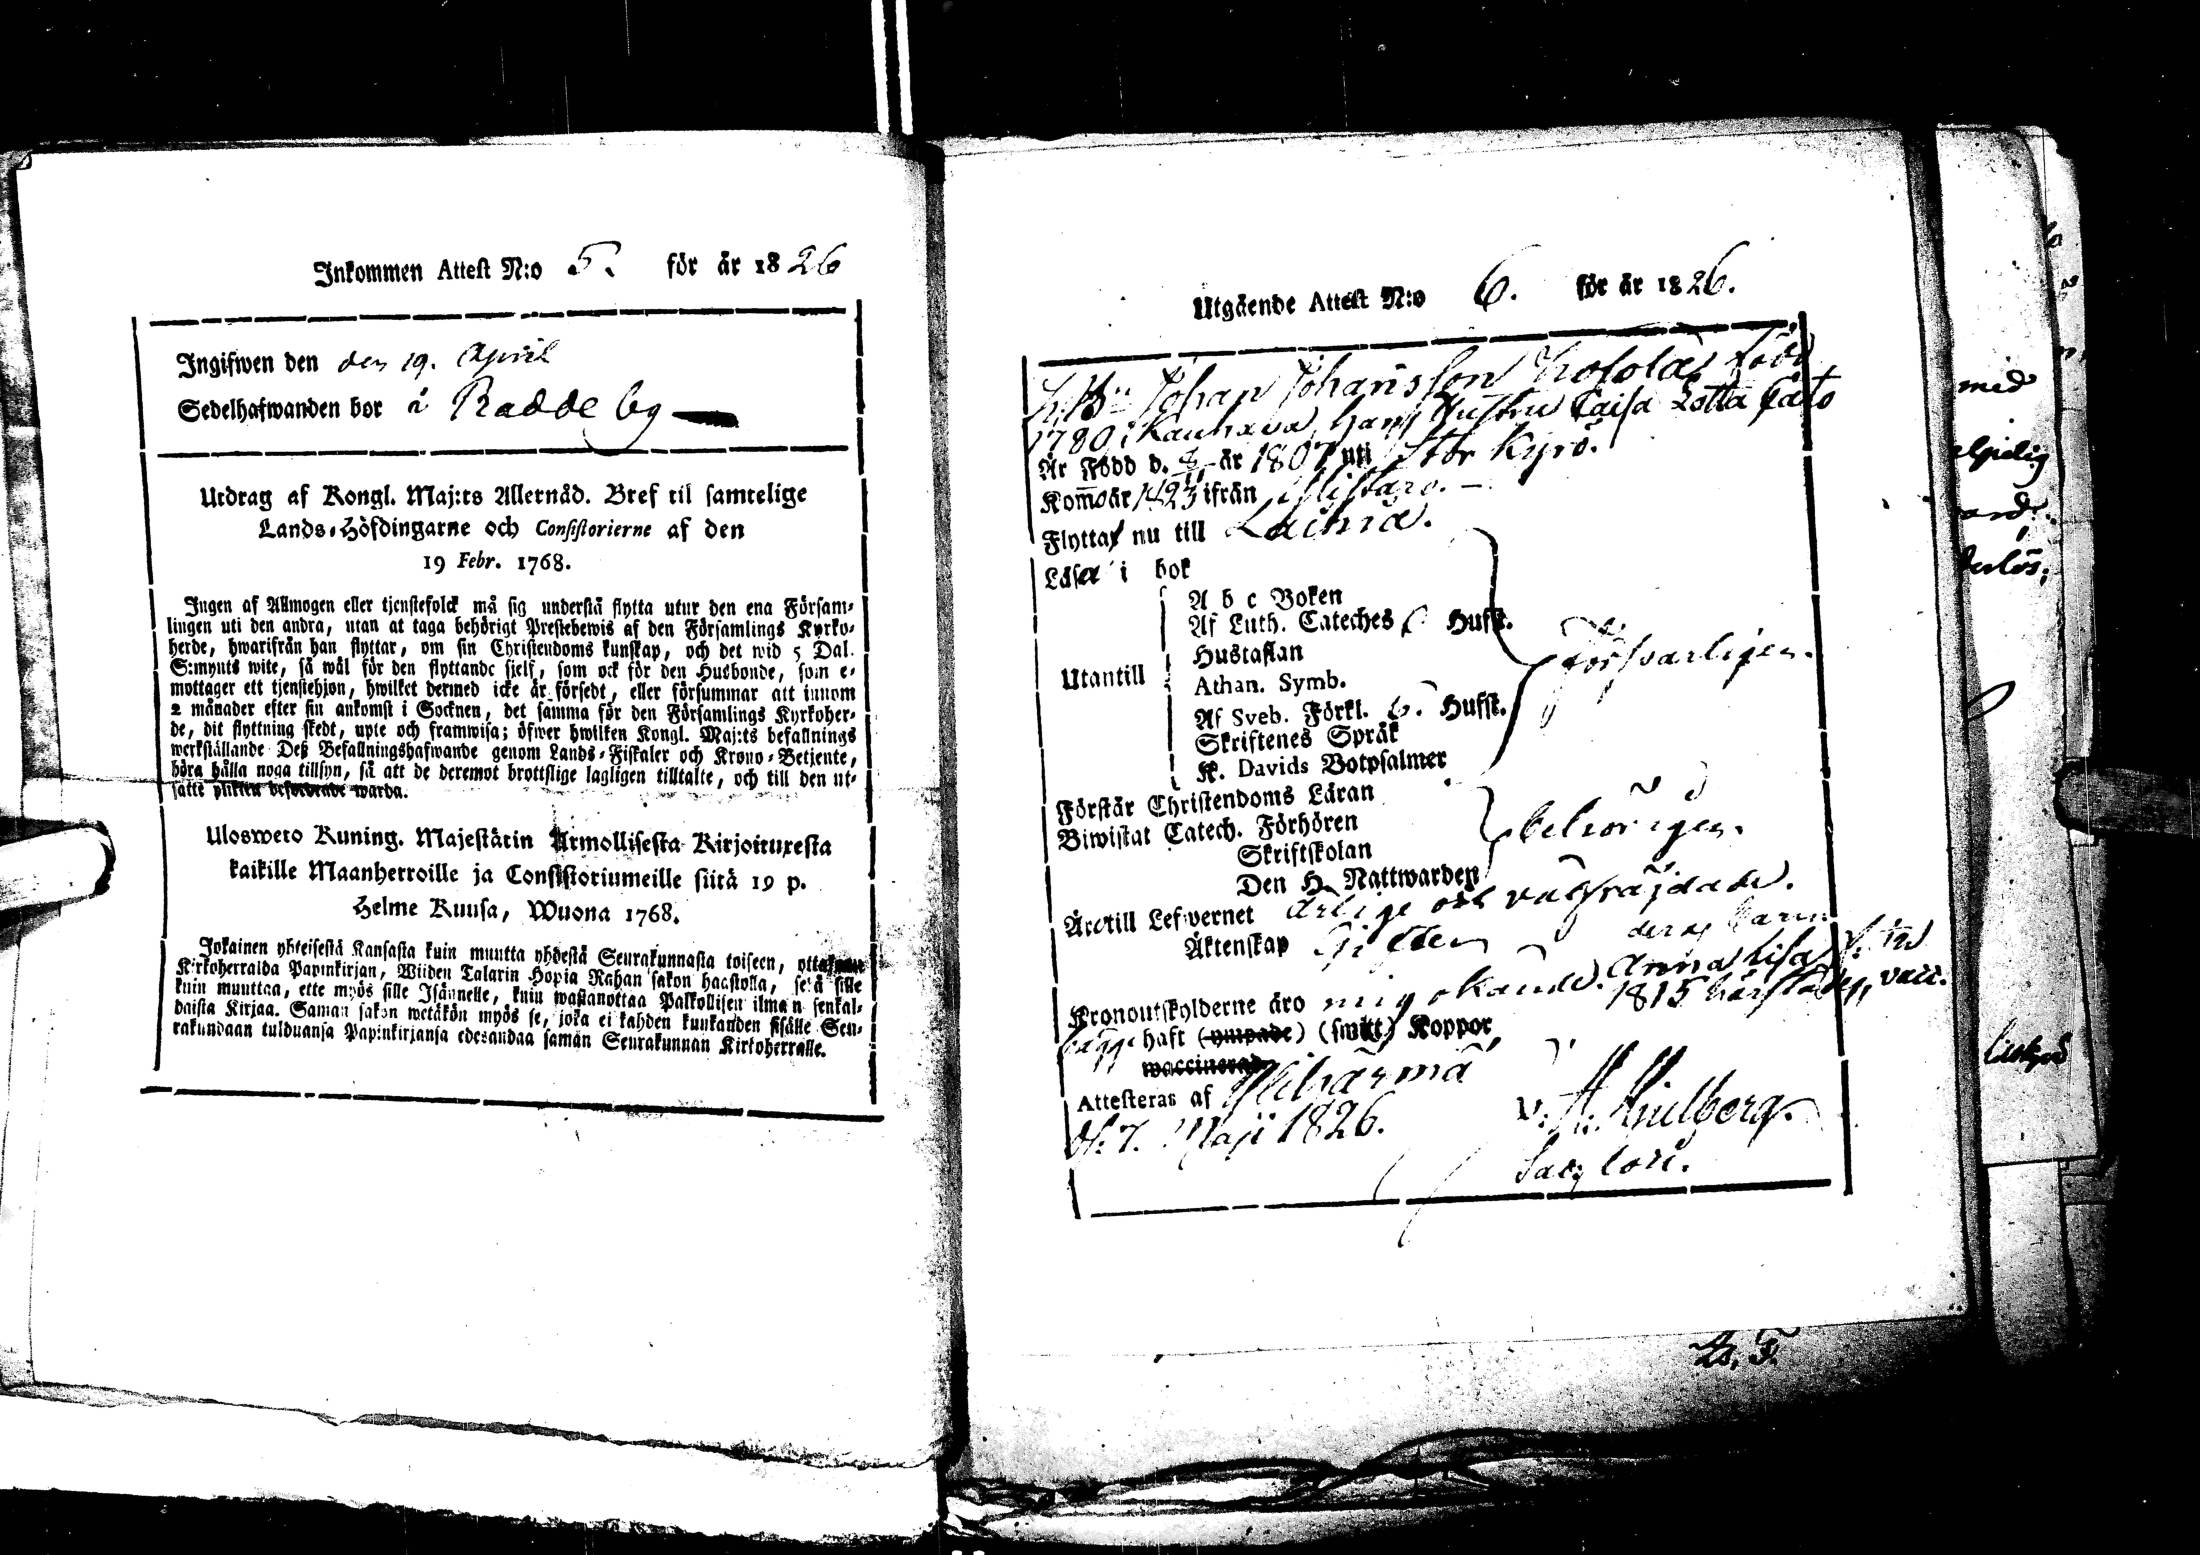 Inkommen Attest N:o 5. för år 1826
Ingifwen den den 19. April
Sedelhafwanden bor å Raddeby
Utdrag af Kongl. Maj:ts Allernåd. Bref til samtelige
Lands-Höfdingarne och Consistorierne af den
19 Febr. 1768.
Ingen af Allmogen eller tjenstefolck må sig understå flytta utur den ena Församlingen
lingen uti den andra, utan at taga behörigt Prestebewis af den Församlings Kyrko-
herde, hwarifrån han flyttar, om sin Christendoms kunskap, och det wid 5 Dal.
S:mynts wite, så wäl för den flyttande sjelf, som ock för den Husbonde, som e-
mottager ett tjenstehjon, hwilket dermed icke är försedt, eller försummar att innom
2 månader efter sin ankomst i Socknen, det samma för den Församlings Kyrkoher-
de, dit flyttning skedt, upte och framwisa; öfwer hwilken Kongl. Maj:ts befallnings
werkställande Deß Befallningshafwande genom Lands-Fiskaler och Krono-Betjente,
böra hålla noga tillsyn, så att de deremot brottslige lagligen tilltalte, och till den ut-
satte plikten befordrade warda.
Ulosweto Kuning. Majestätin Armollisesta Kirjoituxesta
kaikille Maanherroille ja Consistoriumeille siitä 19 p.
Helme Kuusa, Wuona 1768.
Jokainen yhteisestä Kansasta kuin muutta yhdestä Seurakunnasta toiseen, ottakaan
Kirkoherralda Papinkirjan, Wiiden Talarin Hopia Rahan sakon haastolla, sekä sille
kuin muuttaa, ette myös sille Isännelle, kuin wastanottaa Palkollisen ilman senkal-
daista Kirjaa. Saman sakon wetäkön myös se, joka ei kahden kuukauden sisälle Seu-
rakundaan tulduansa Papinkirjansa edesandaa saman Seurakunnan Kirkoherralle.
Utgående Attest N:o 6. för år 1826.
Johan Johansson Kosola född
1780 i Kauhava, hans hustru Caisa Lotta Cato
Är Född d. år 1807 uti Stor Kyrö.
Kom̄o år 1823 ifrån Ylistaro.
Flytta nu till Laihia.
Läsa i bok
A b c Boken
Af Luth. Cateches 6 Hufst.
Hustaflan
Utantill
Athan. Symb.
försvarligen.
Af Sveb. Förkl. 6. Hufst.
Skriftenes Språk
K. Davids Botpsalmer
Förstår Christendoms Läran
Biwistat Catech. Förhören
behörigen.
Skriftskolan
Den H. Nattwarden
Är till Lefwernet ärlige och välfräjdade.
Äktenskap Gifte deras barn
Kronoutskylderne äro mig okände. Anna Lisa född
1815 härstädes, vacc.
bägge haft (ympade) (smitt) Koppor,
waccinerad
Attesteras af Ylihärmä
d. 7. Maji 1826.